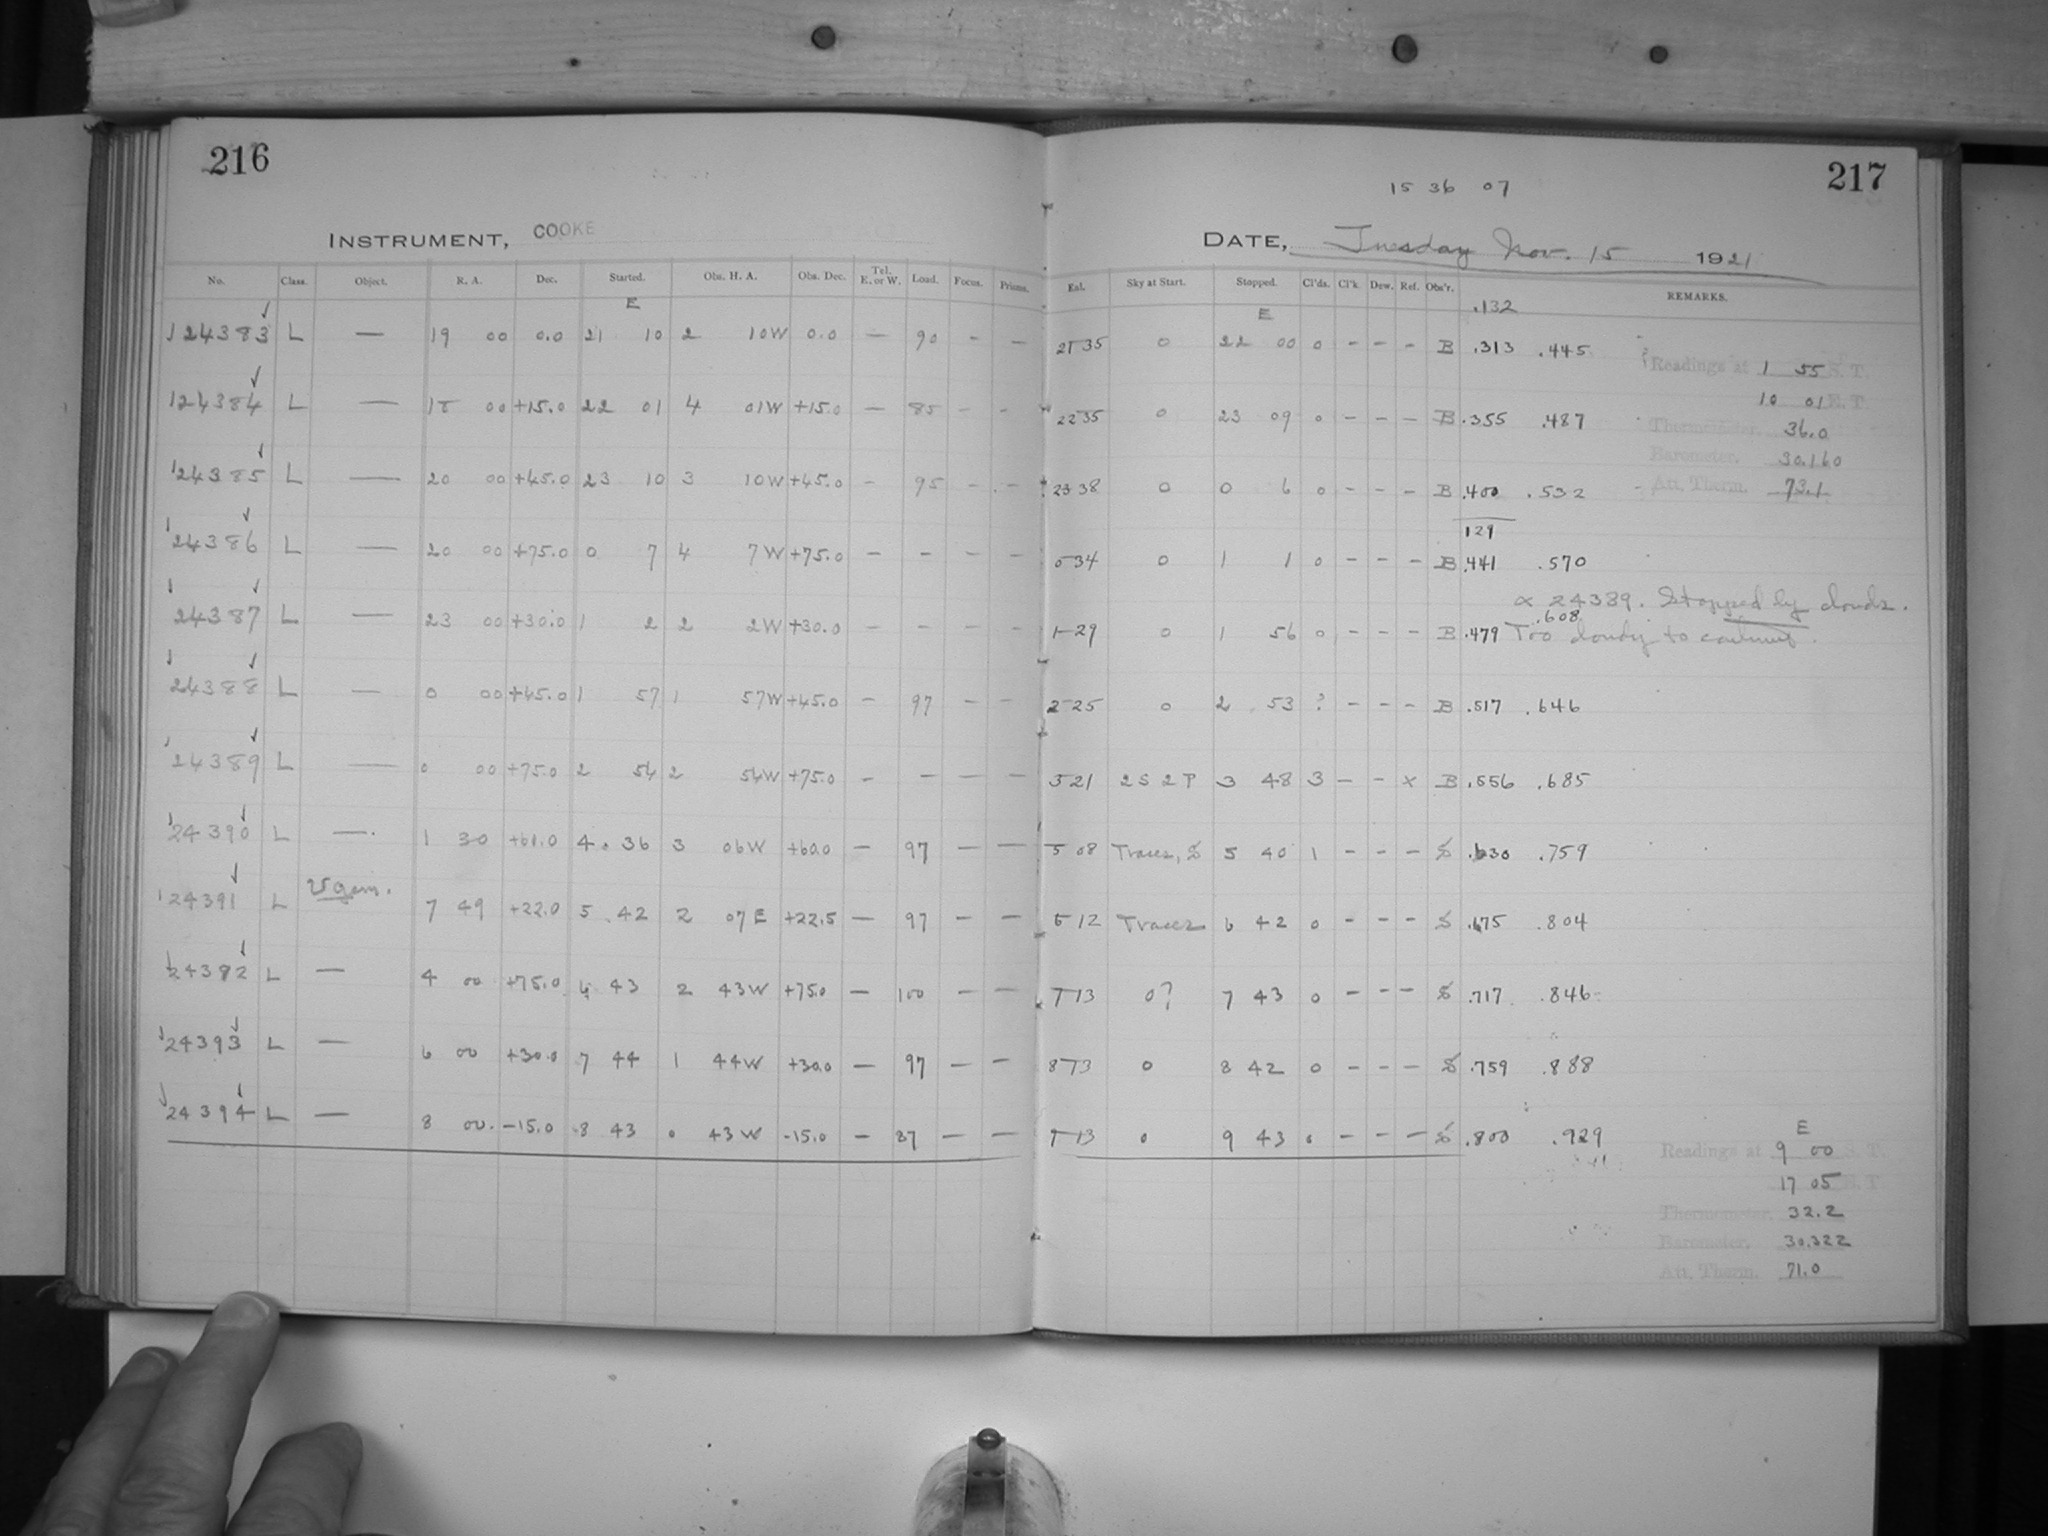 216
INSTRUMENT, COOKE
No. Class. Object. R. A. Dec. Started. Obs. H. A. Obs. Dec. Tel. E. or W. Load. Focus. Prisms.
E
124383 L — 19 00 0.0 21 10 2 10W 0.0 — 90 - —
124384 L — 18 00 +15.0 22 01 4 01W +15.0 — 85 - -
124385 L — 20 00 +45.0 23 10 3 10W +45.0 - 95 - -
124386 L — 20 00 +75.0 0 7 4 7W +75.0 — - - -
124387 L — 23 00 +30.0 1 2 2 2W +30.0 — - - -
124388 L — 0 00 +45.0 1 57 1 57W +45.0 — 97 - -
124389 L — 0 00 +75.0 2 54 2 54W +75.0 - - — —
124390 L — 1 30 4 36 3 06W +60.0 — 97 — —
124391 L U Gem. 7 49 +22.0 5 42 2 07E +22.5 — 97 — —
L — 4 00 +75.0 6 43 2 43W +75.0 — 100 — —
124393 L — 6 00 +30.0 7 44 1 44W +30.0 — 97 — —
124394 L — 8 00 -15.0 8 43 0 43W -15.0 — — —
217
15 36 07
DATE, Tuesday Nov. 15 1921
Eal. Sky at Start. Stopped. Cl'ds. Cl'k. Dew. Ref. Obs'r. REMARKS.
E .132
21 35 0 22 00 0 - - - B .313 .445
Readings at 1 55 S. T.
22 35 0 23 09 0 - - - B .355 .487
10 01 E. T.
Thermometer. 36.0
Barometer. 30.160
23 38 0 0 6 0 - - - B .400 .532
Att. Therm. 73.1
129
0 34 0 1 1 0 - - - B .441 .570
24389. Stopped by clouds.
.608
1 29 0 1 56 0 - - - B .479 Too cloudy to continue.
2 25 0 2 53 ? - - - B .517 .646
3 21 2 S 2 P 3 48 3 - - x B .556 .685
5 08 Traces, S 5 40 1 - - - S .630 .759
6 12 Traces 6 42 0 - - - S .675 .804
7 13 0? 7 43 0 - - - S .717 .846
8 13 0 8 42 0 - - - S .759 .888
9 13 0 9 43 0 - - - S .800 .929
E
Readings at 9 00 S. T.
17 05 E. T.
Thermometer. 32.2
Barometer. 30.322
Att. Therm. 71.0